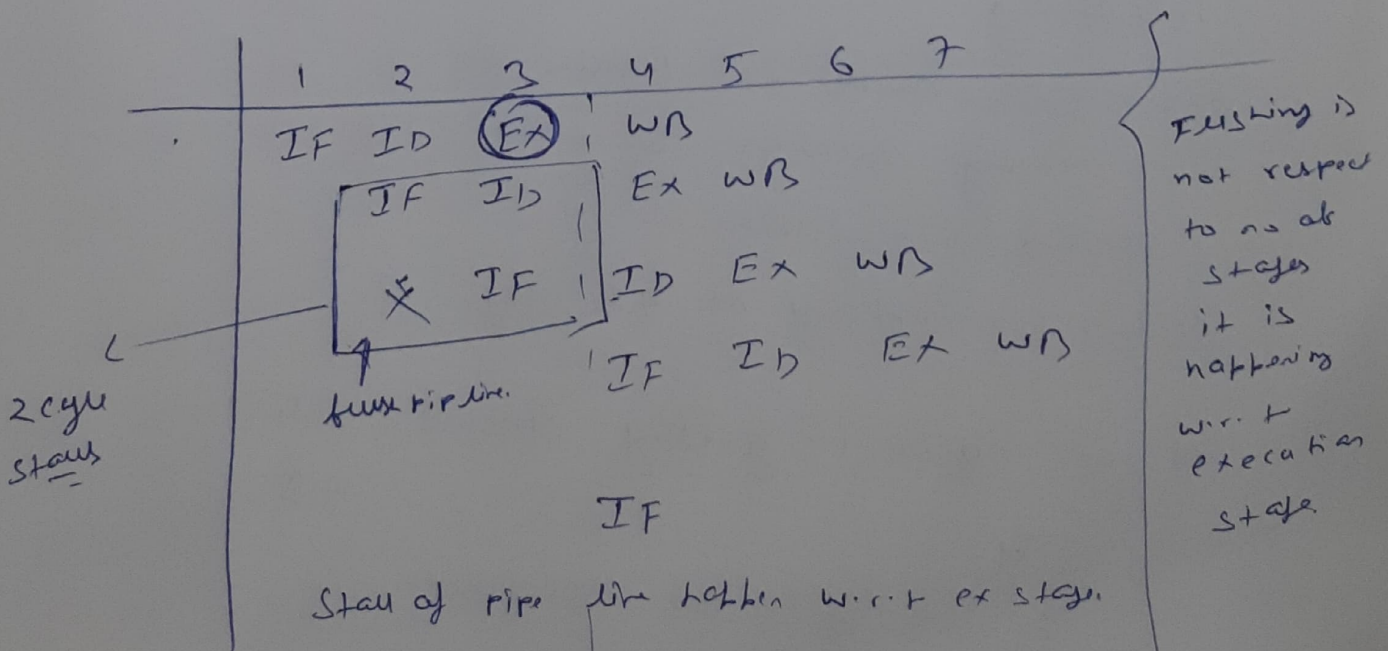 1 2 3 4 5 6 7
IF ID EX WB
IF ID EX WB
IF ID EX WB
IF ID EX WB
2 cycle
stalls
pipline.
IF
Stall of pipe line happen w.r.t ex stage.
Flushing is
not respect
to no of
stages
it is
happening
w.r.t
execution
stage